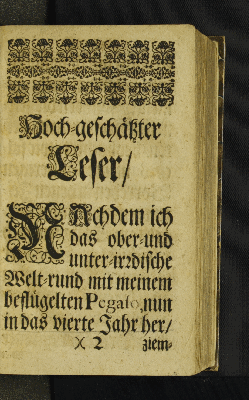 Hoch-geschätzter
Leser/
NAchdem ich
das ober-und
unter-irrdische
Welt-rund mit meinem
beflügelten Pegaso, nun
in das vierte Jahr her/
X 2 ziem-